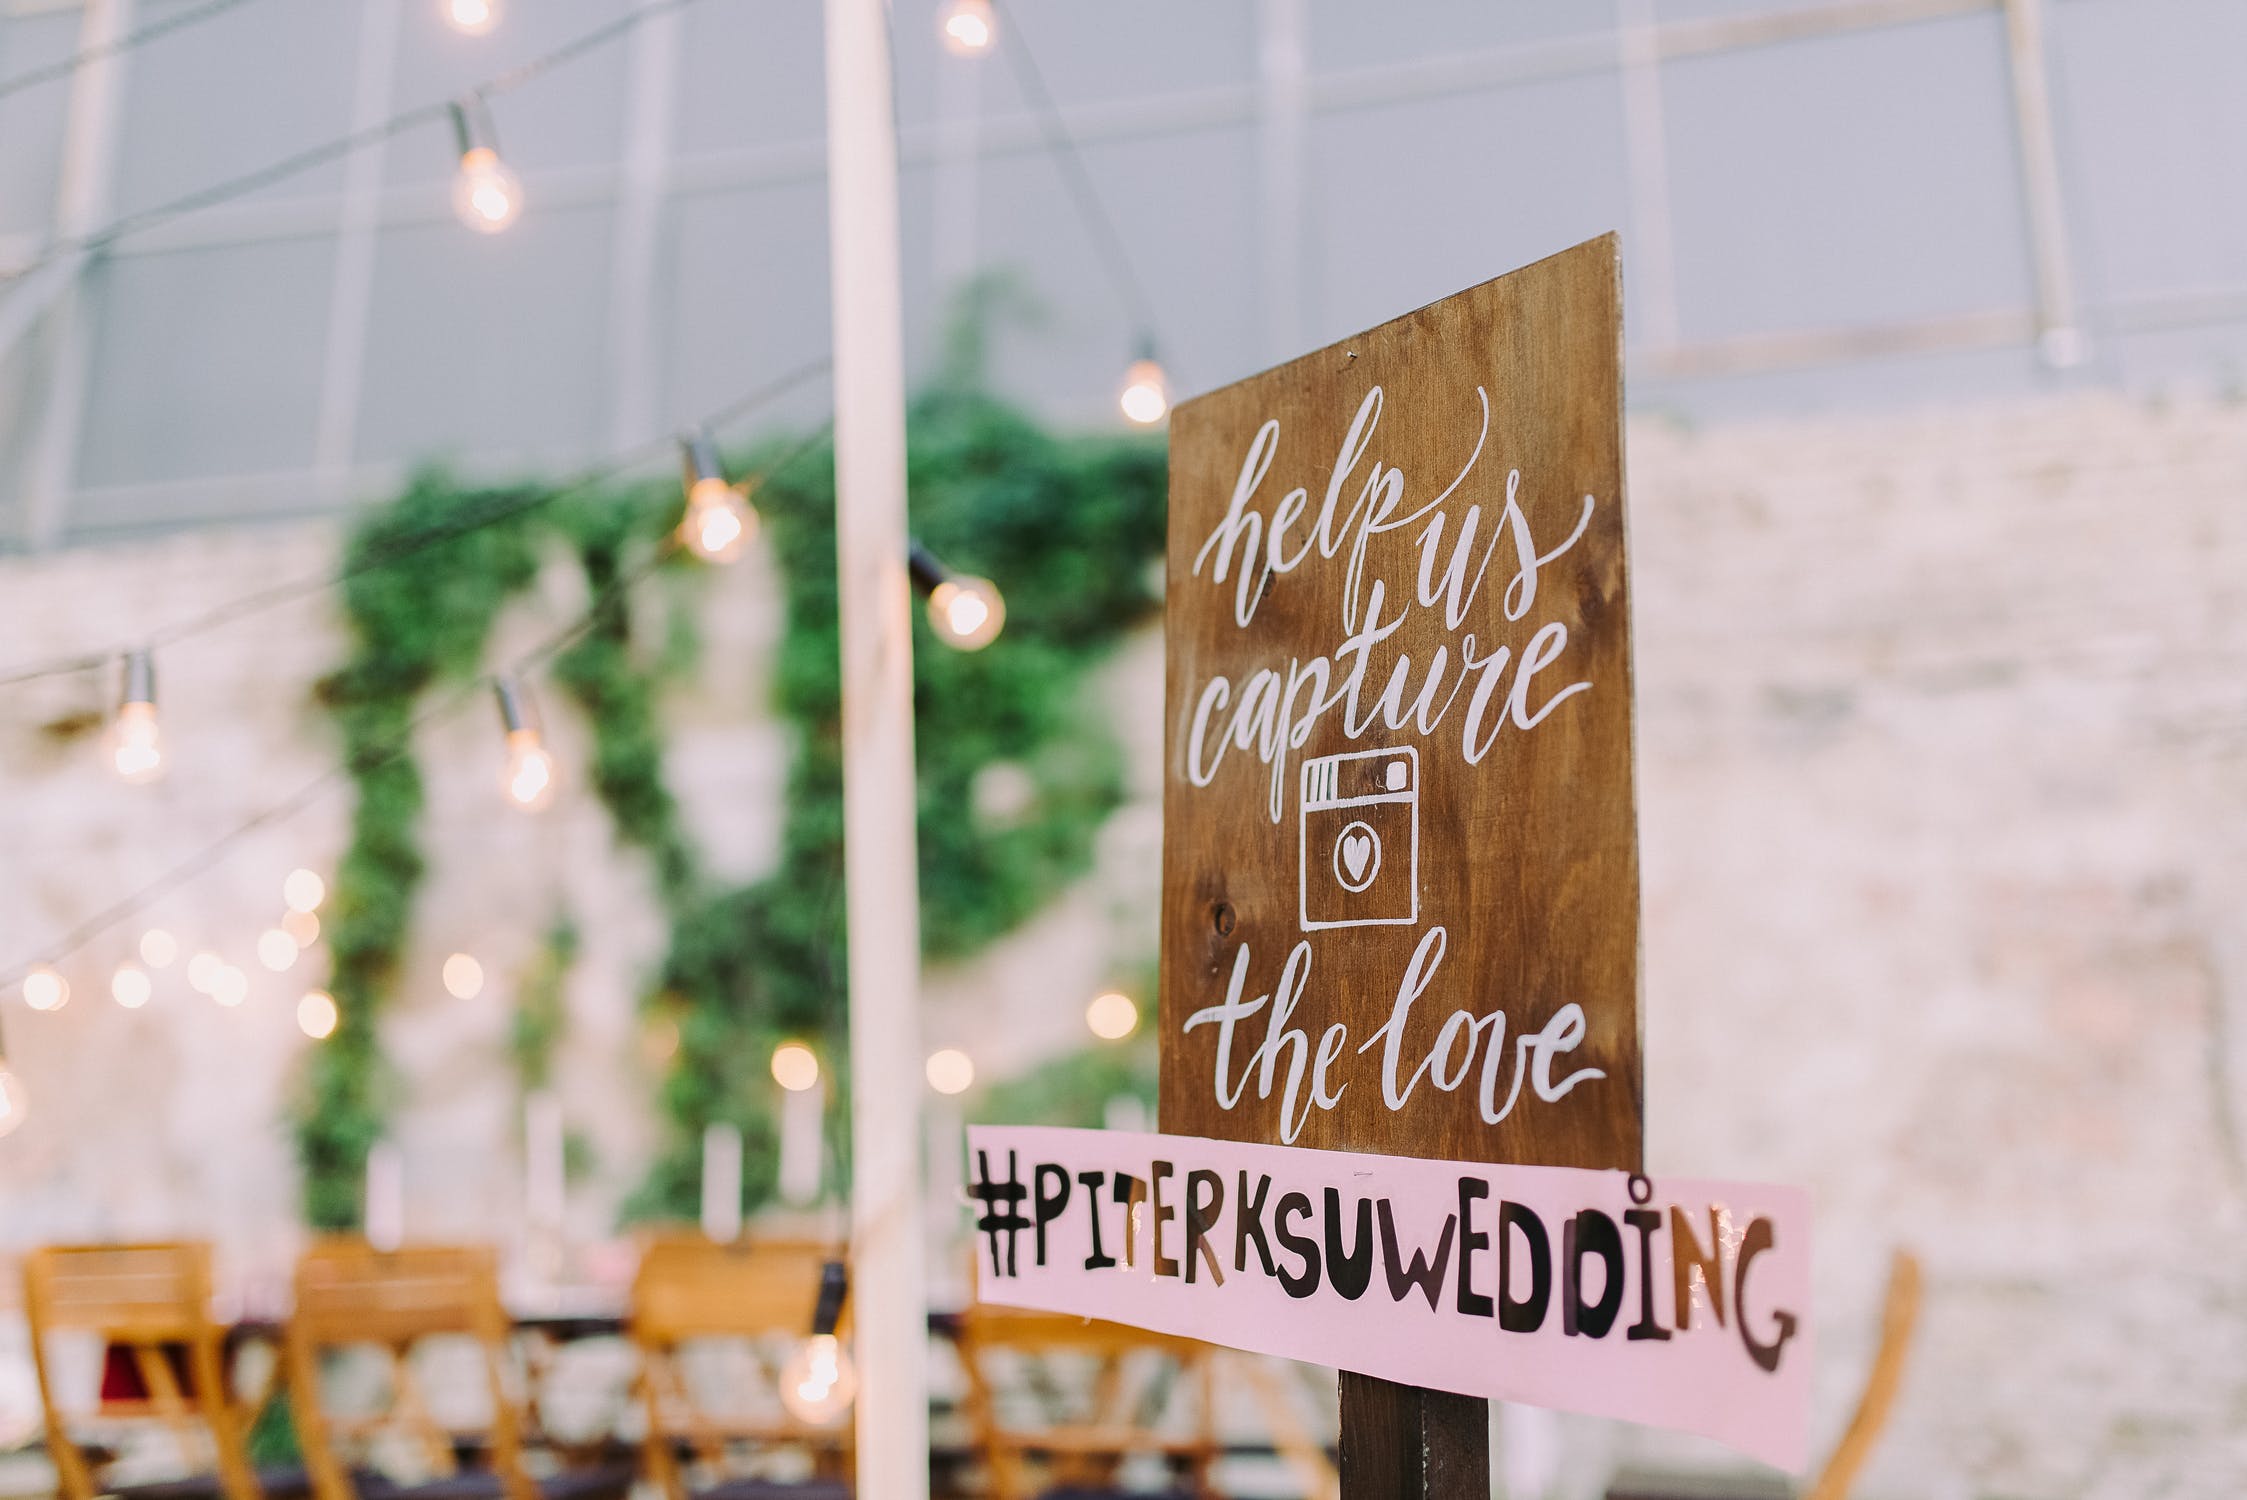 help us
capture
the love
#PITERKSUWEDDING